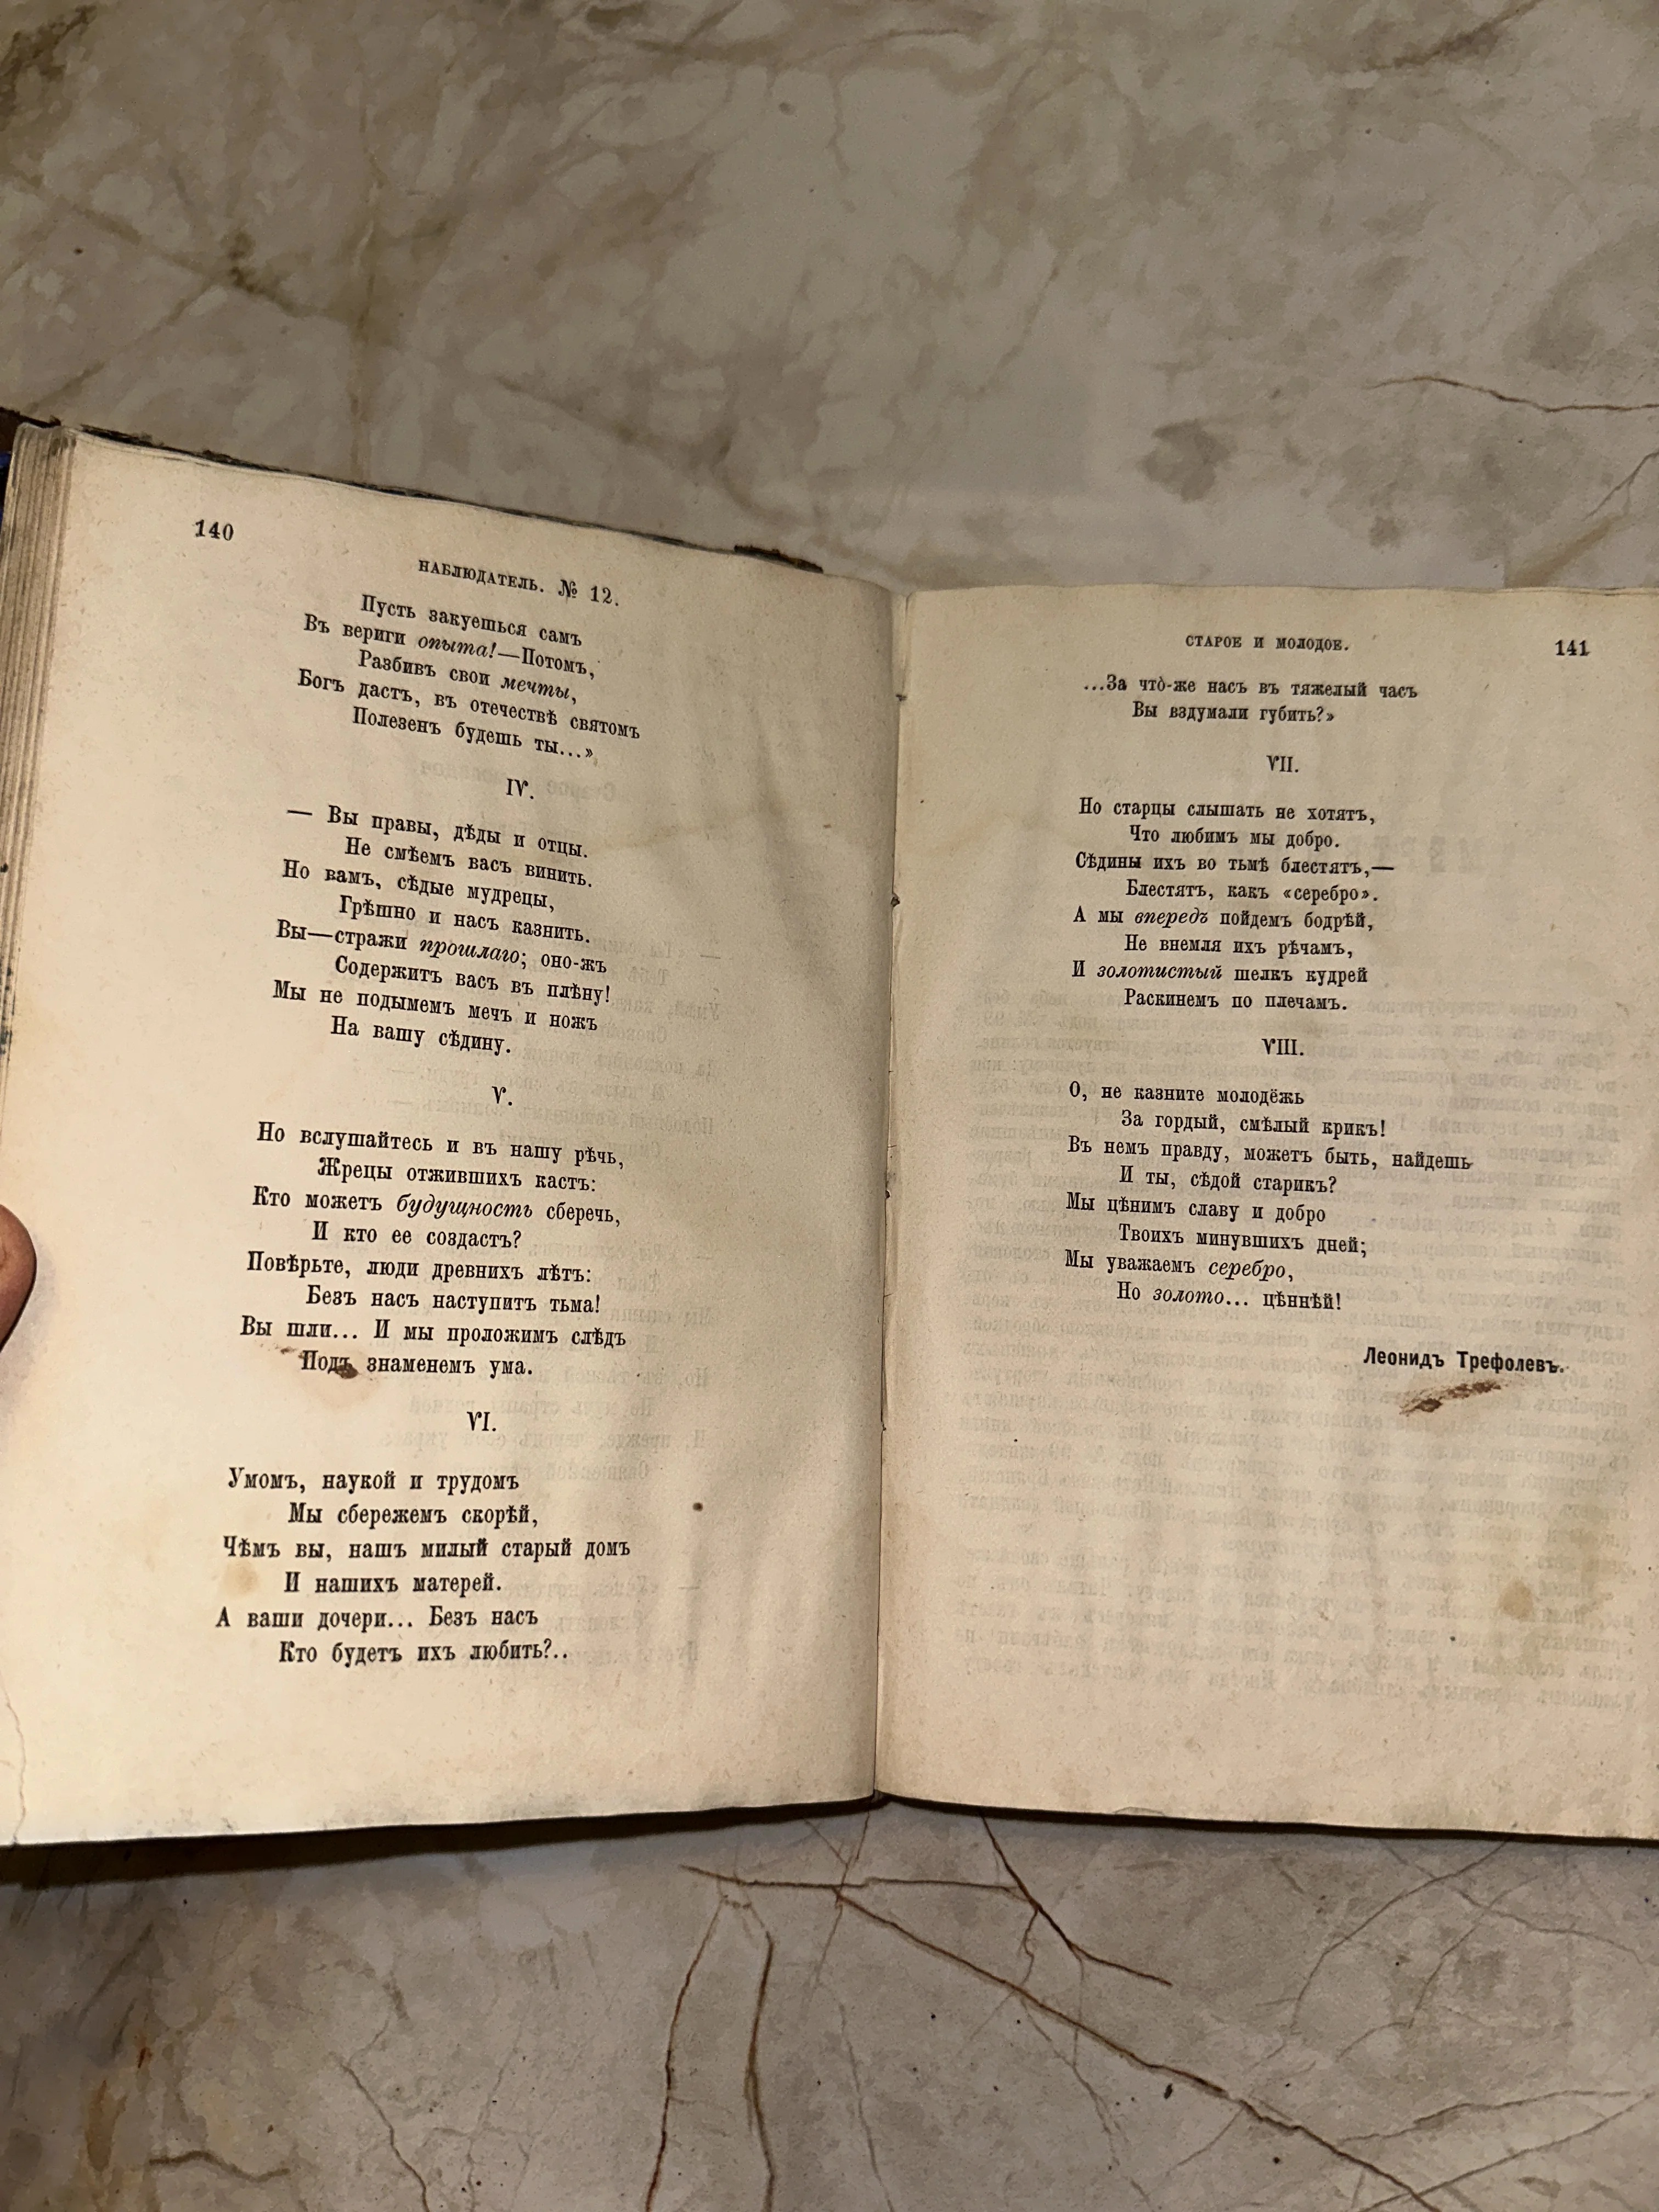 140
НАБЛЮДАТЕЛЬ. № 12.
Пусть закуешься самъ
Въ вериги опыта!—Потомъ,
Разбивъ свои мечты,
Богъ дастъ, въ отечествѣ святомъ
Полезенъ будешь ты...»
IV.
— Вы правы, дѣды и отцы.
Не смѣемъ васъ винить.
Но вамъ, сѣдые мудрецы,
Грѣшно и насъ казнить.
Вы—стражи прошлаго; оно-жъ
Содержитъ васъ въ плѣну!
Мы не подымемъ мечъ и ножъ
На вашу сѣдину.
V.
Но вслушайтесь и въ нашу рѣчь,
Жрецы отжившихъ кастъ:
Кто можетъ будущность сберечь,
И кто ее создастъ?
Повѣрьте, люди древнихъ лѣтъ:
Безъ насъ наступитъ тьма!
Вы шли... И мы проложимъ слѣдъ
Подъ знаменемъ ума.
VI.
Умомъ, наукой и трудомъ
Мы сбережемъ скорѣй,
Чѣмъ вы, нашъ милый старый домъ
И нашихъ матерей.
А ваши дочери... Безъ насъ
Кто будетъ ихъ любить?..
СТАРОЕ И МОЛОДОЕ.
141
...За что̀-же насъ въ тяжелый часъ
Вы вздумали губить?»
VII.
Но старцы слышать не хотятъ,
Что любимъ мы добро.
Сѣдины ихъ во тьмѣ блестятъ,—
Блестятъ, какъ «серебро».
А мы впередъ пойдемъ бодрѣй,
Не внемля ихъ рѣчамъ,
И золотистый шелкъ кудрей
Раскинемъ по плечамъ.
VIII.
О, не казните молодёжь
За гордый, смѣлый крикъ!
Въ немъ правду, можетъ быть, найдешь
И ты, сѣдой старикъ?
Мы цѣнимъ славу и добро
Твоихъ минувшихъ дней;
Мы уважаемъ серебро,
Но золото... цѣннѣй!
Леонидъ Трефолевъ.